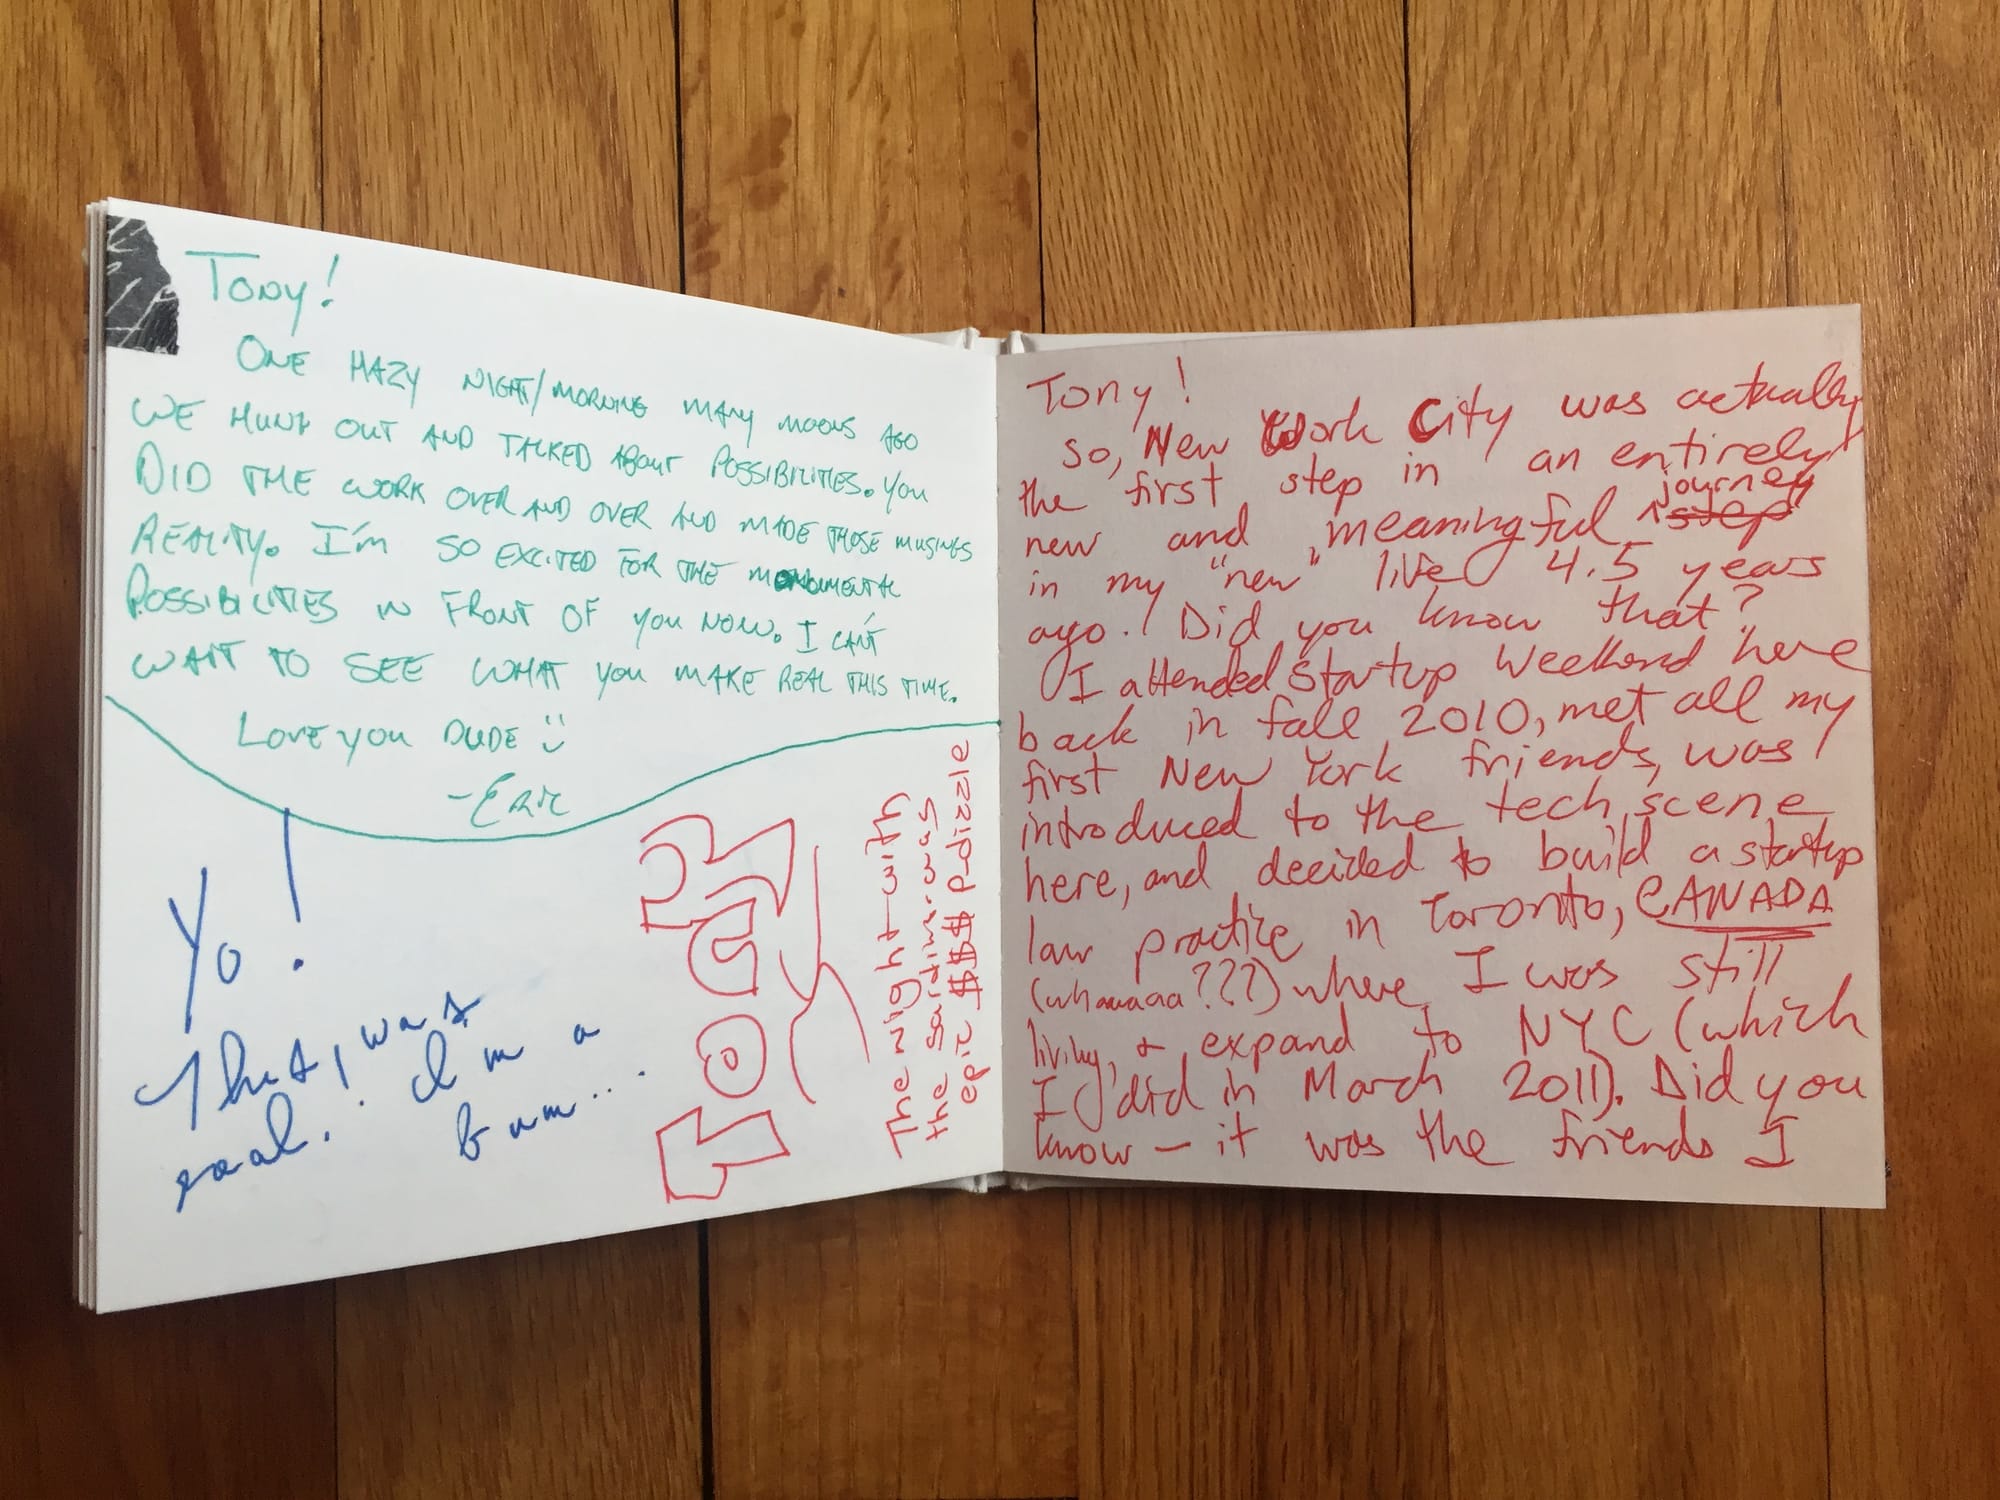 Tony!
ONE HAZY NIGHT/MORNING MANY MOONS AGO
WE HUNG OUT AND TALKED ABOUT POSSIBILITIES. YOU
DID THE WORK OVER AND OVER AND MADE THOSE MUSINGS
REALITY. I'M SO EXCITED FOR THE MONUMENTAL
POSSIBILITIES IN FRONT OF YOU NOW. I CAN'T
WAIT TO SEE WHAT YOU MAKE REAL THIS TIME.
LOVE YOU DUDE :)
-ERIC
Yo!
That, was
real. I'm a
bum...
TONY
The night with
the sardines was
epic $$$$ p-dizzle
Tony!
So, New Work City was actually
the first step in an entirely
new and meaningful step journey
in my "new" life 4.5 years
ago! Did you know that?
I attended Startup Weekend here
back in fall 2010, met all my
first New York friends, was
introduced to the tech scene
here, and decided to build a startup
law practice in Toronto, CANADA
(whaaaaaa???) where I was still
living, & expand to NYC (which
I did in March 2011). Did you
know - it was the friends I